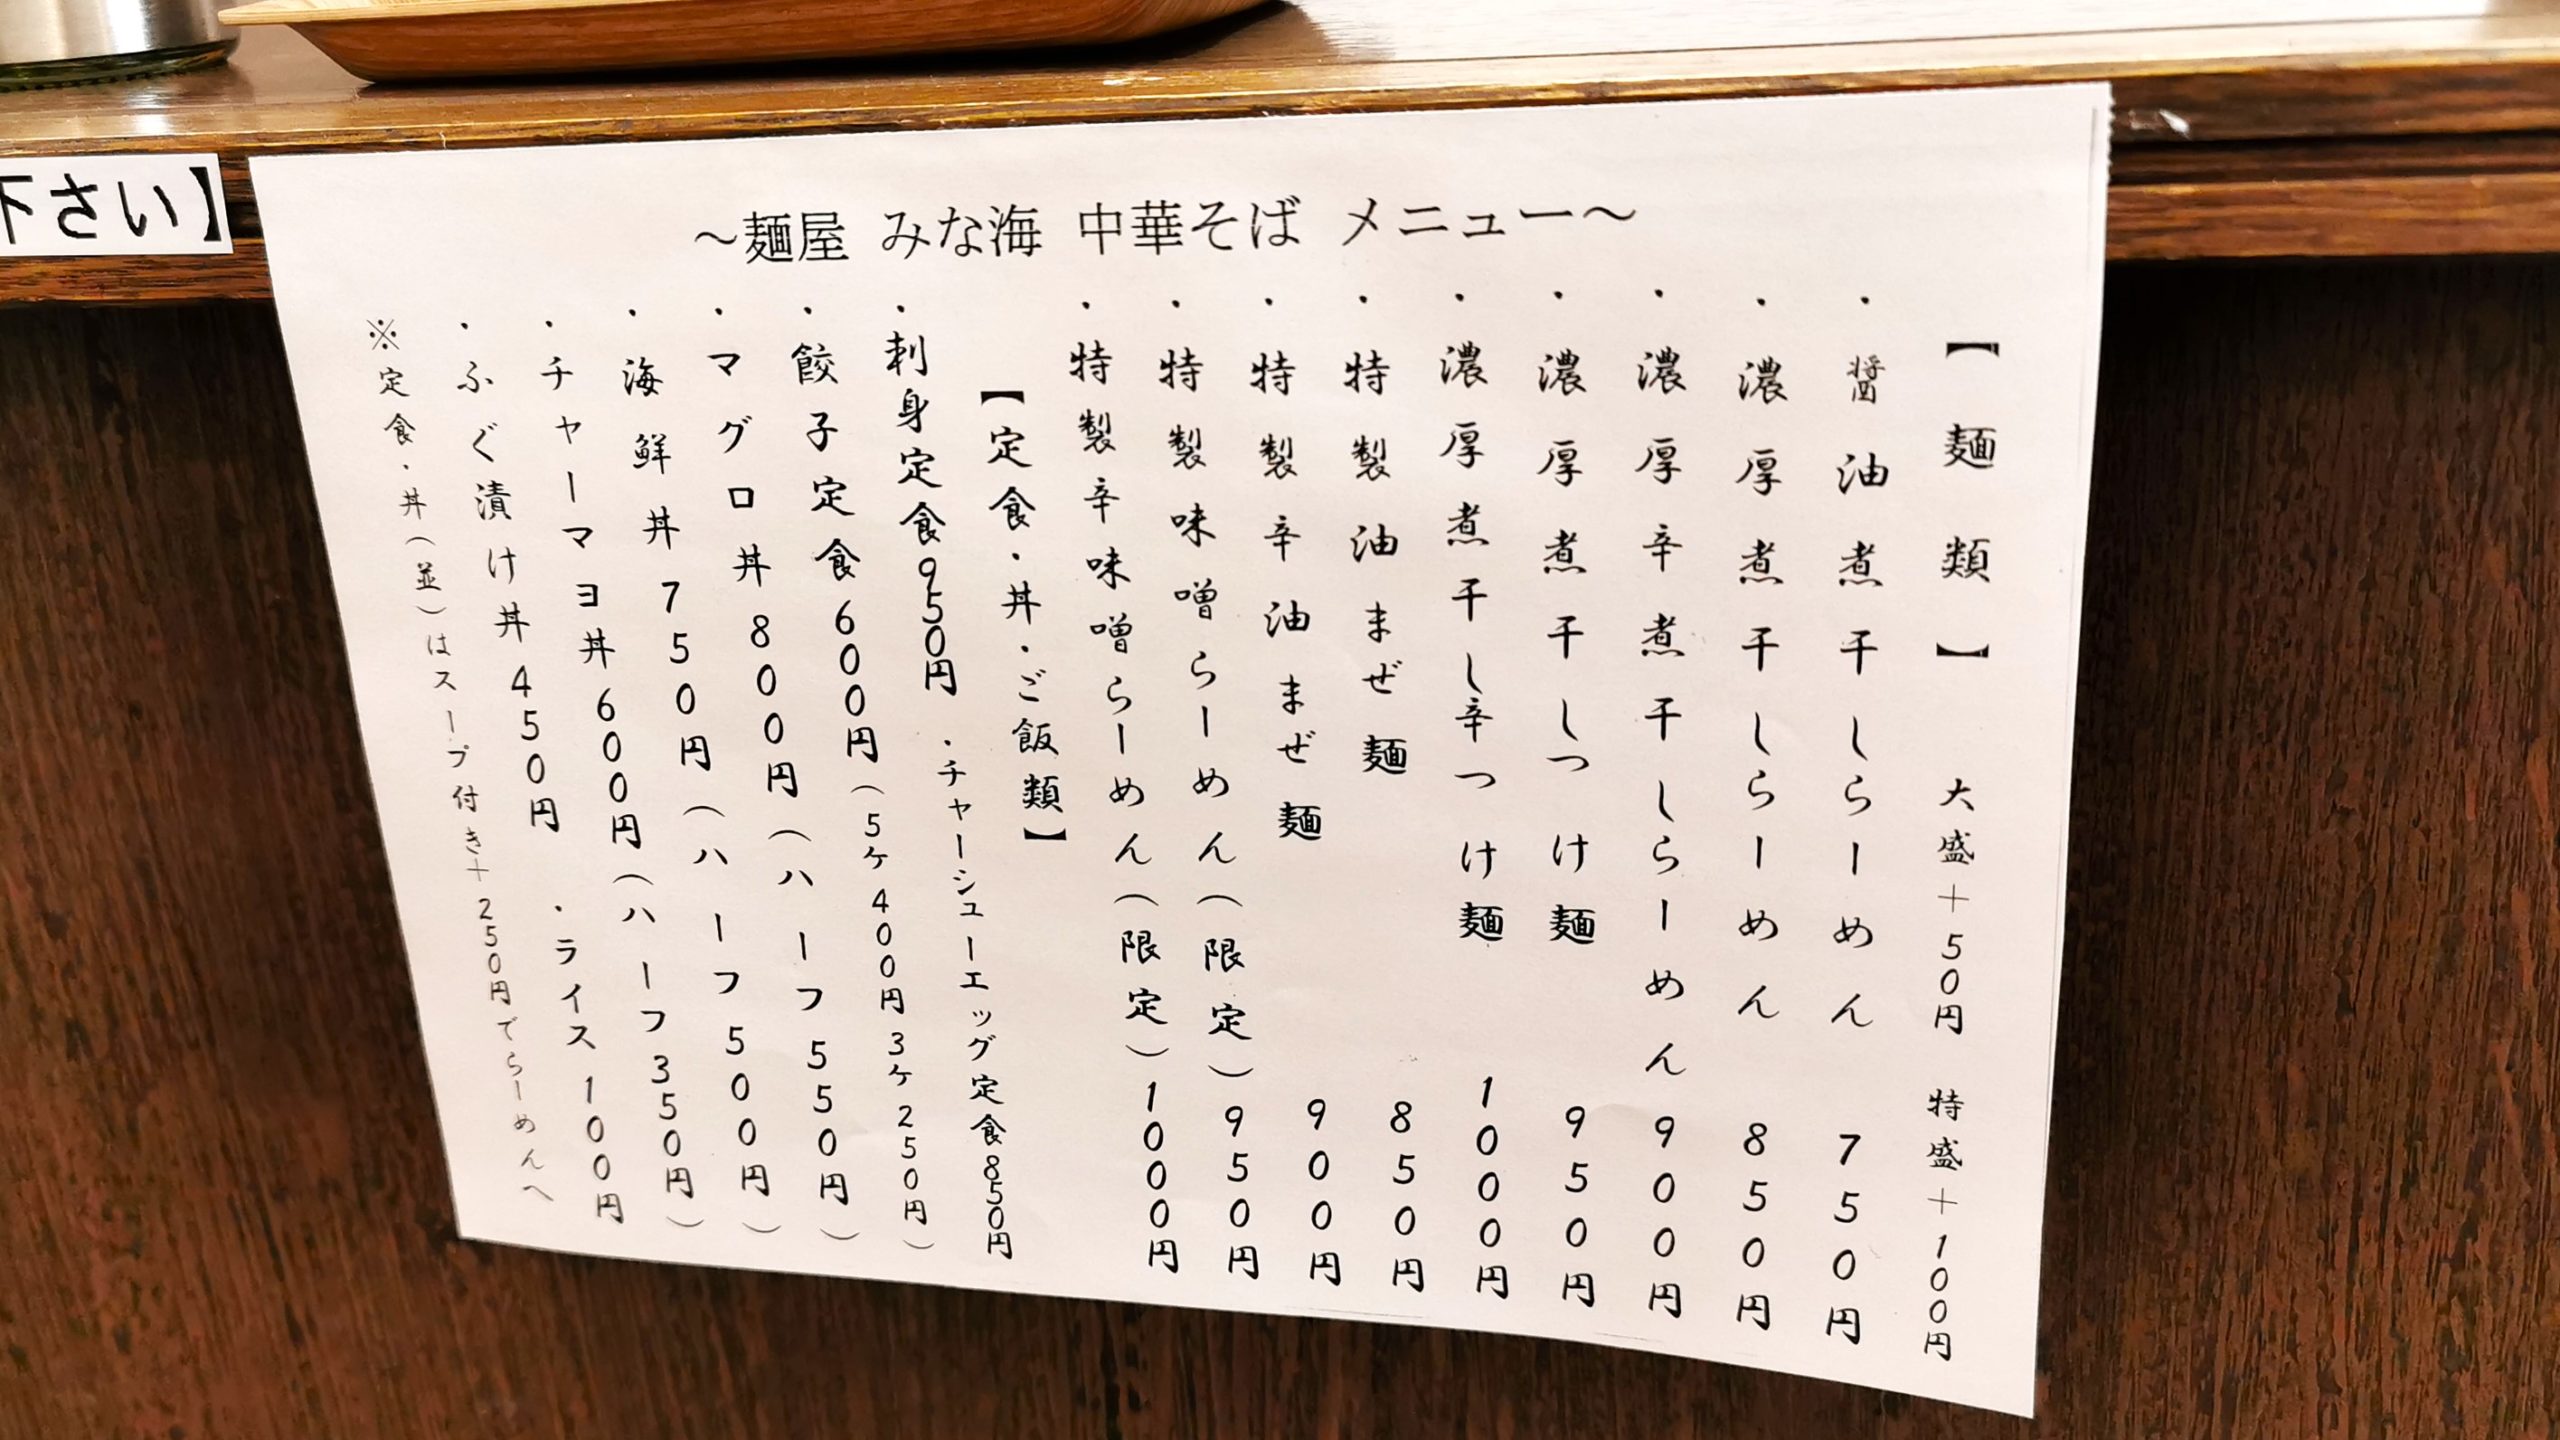 下さい】
～麺屋 みな海 中華そば メニュー～
【麺類】 大盛＋50円 特盛＋100円
・醤油煮干しらーめん 750円
・濃厚煮干しらーめん 850円
・濃厚辛煮干しらーめん 900円
・濃厚煮干しつけ麺 950円
・濃厚煮干し辛つけ麺 1000円
・特製油まぜ麺 850円
・特製辛油まぜ麺 900円
・特製味噌らーめん（限定）950円
・特製辛味噌らーめん（限定）1000円
【定食・丼・ご飯類】
・刺身定食950円 ・チャーシューエッグ定食850円
・餃子定食600円（5ヶ400円 3ヶ250円）
・マグロ丼800円（ハーフ550円）
・海鮮丼750円（ハーフ500円）
・チャーマヨ丼600円（ハーフ350円）
・ふぐ漬け丼450円 ・ライス100円
※定食・丼（並）はスープ付き＋250円でらーめんへ